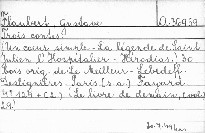 Flaubert Gustave A.36959
Trois contes.
Un cœur simple. - La légende de Saint
Julien l'Hospitalier. - Hérodias. 30
bois orig. de Le Meilleur - Lebedeff.
Paris (s.a.) Fayard
(Le livre de demain,
29.)